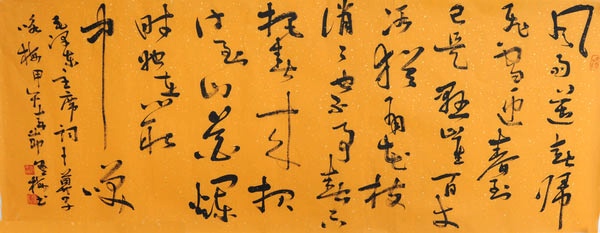 风雨送春归
飞雪迎春到
已是悬崖百丈
冰犹有花枝
俏〻也不争春只
把春来报
待到山花烂
时她在丛
中笑
毛泽东主席词卜算子
咏梅甲午